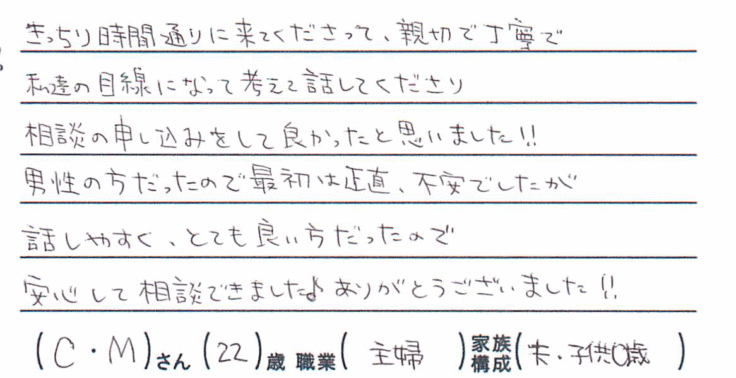 きっちり時間通りに来てくださって、親切で丁寧で
私達の目線になって考えて話してくださり
相談の申し込みをして良かったと思いました!!
男性の方だったので最初は正直、不安でしたが
話しやすく、とても良い方だったので
安心して相談できました♪ありがとうございました!!
(C・M)さん(22)歳 職業(主婦)家族構成(夫・子供0歳)